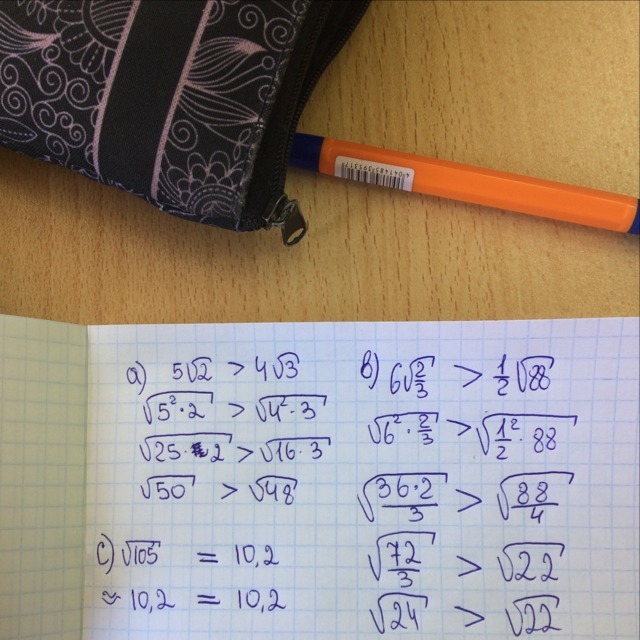 4041485393317
a) 5√2 > 4√3
√5²·2 > √4²·3
√25·2 > √16·3
√50 > √48
c) √105 = 10,2
≈ 10,2 = 10,2
b) 6√2/3 > 1/2√88
√6²·2/3 > √1²/2·88
√36·2/3 > √88/4
√72/3 > √22
√24 > √22